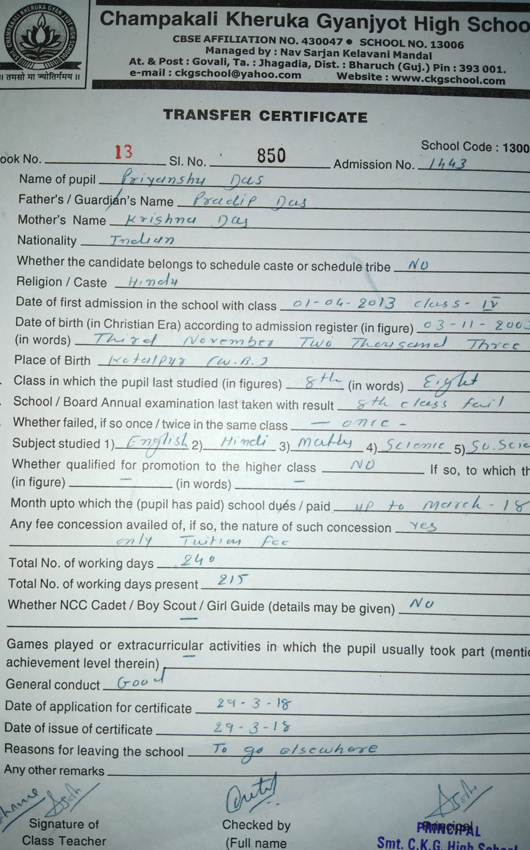 Champakali Kheruka Gyanjyot High Schoo
CBSE AFFILIATION NO. 430047 • SCHOOL NO. 13006
Managed by : Nav Sarjan Kelavani Mandal
At. & Post : Govali, Ta. : Jhagadia, Dist. : Bharuch (Guj.) Pin : 393 001.
e-mail : ckgschool@yahoo.com Website : www.ckgschool.com
॥ तमसो मा ज्योतिर्गमय ॥
TRANSFER CERTIFICATE
School Code : 1300
ook No. 13 Sl. No. 850 Admission No. 1443
Name of pupil Priyanshu Das
Father's / Guardian's Name Pradip Das
Mother's Name Krishna Das
Nationality Indian
Whether the candidate belongs to schedule caste or schedule tribe NO
Religion / Caste Hindu
Date of first admission in the school with class 01-04-2013 class - IV
Date of birth (in Christian Era) according to admission register (in figure) 03-11-2003
(in words) Third November Two Thousand Three
Place of Birth Kotalpur (W.B.)
Class in which the pupil last studied (in figures) 8th (in words) Eight
School / Board Annual examination last taken with result 8th class fail
Whether failed, if so once / twice in the same class - once -
Subject studied 1) English 2) Hindi 3) Maths 4) Science 5) So.Scie
Whether qualified for promotion to the higher class NO If so, to which th
(in figure) - (in words) -
Month upto which the (pupil has paid) school dues / paid up to March - 18
Any fee concession availed of, if so, the nature of such concession yes
only Tuition fee
Total No. of working days 240
Total No. of working days present 215
Whether NCC Cadet / Boy Scout / Girl Guide (details may be given) NO
Games played or extracurricular activities in which the pupil usually took part (mentio
achievement level therein) -
General conduct Good
Date of application for certificate 29-3-18
Date of issue of certificate 29-3-18
Reasons for leaving the school To go elsewhere
Any other remarks
Signature of Checked by Principal
PRINCIPAL
Class Teacher (Full name Smt. C.K.G. High School